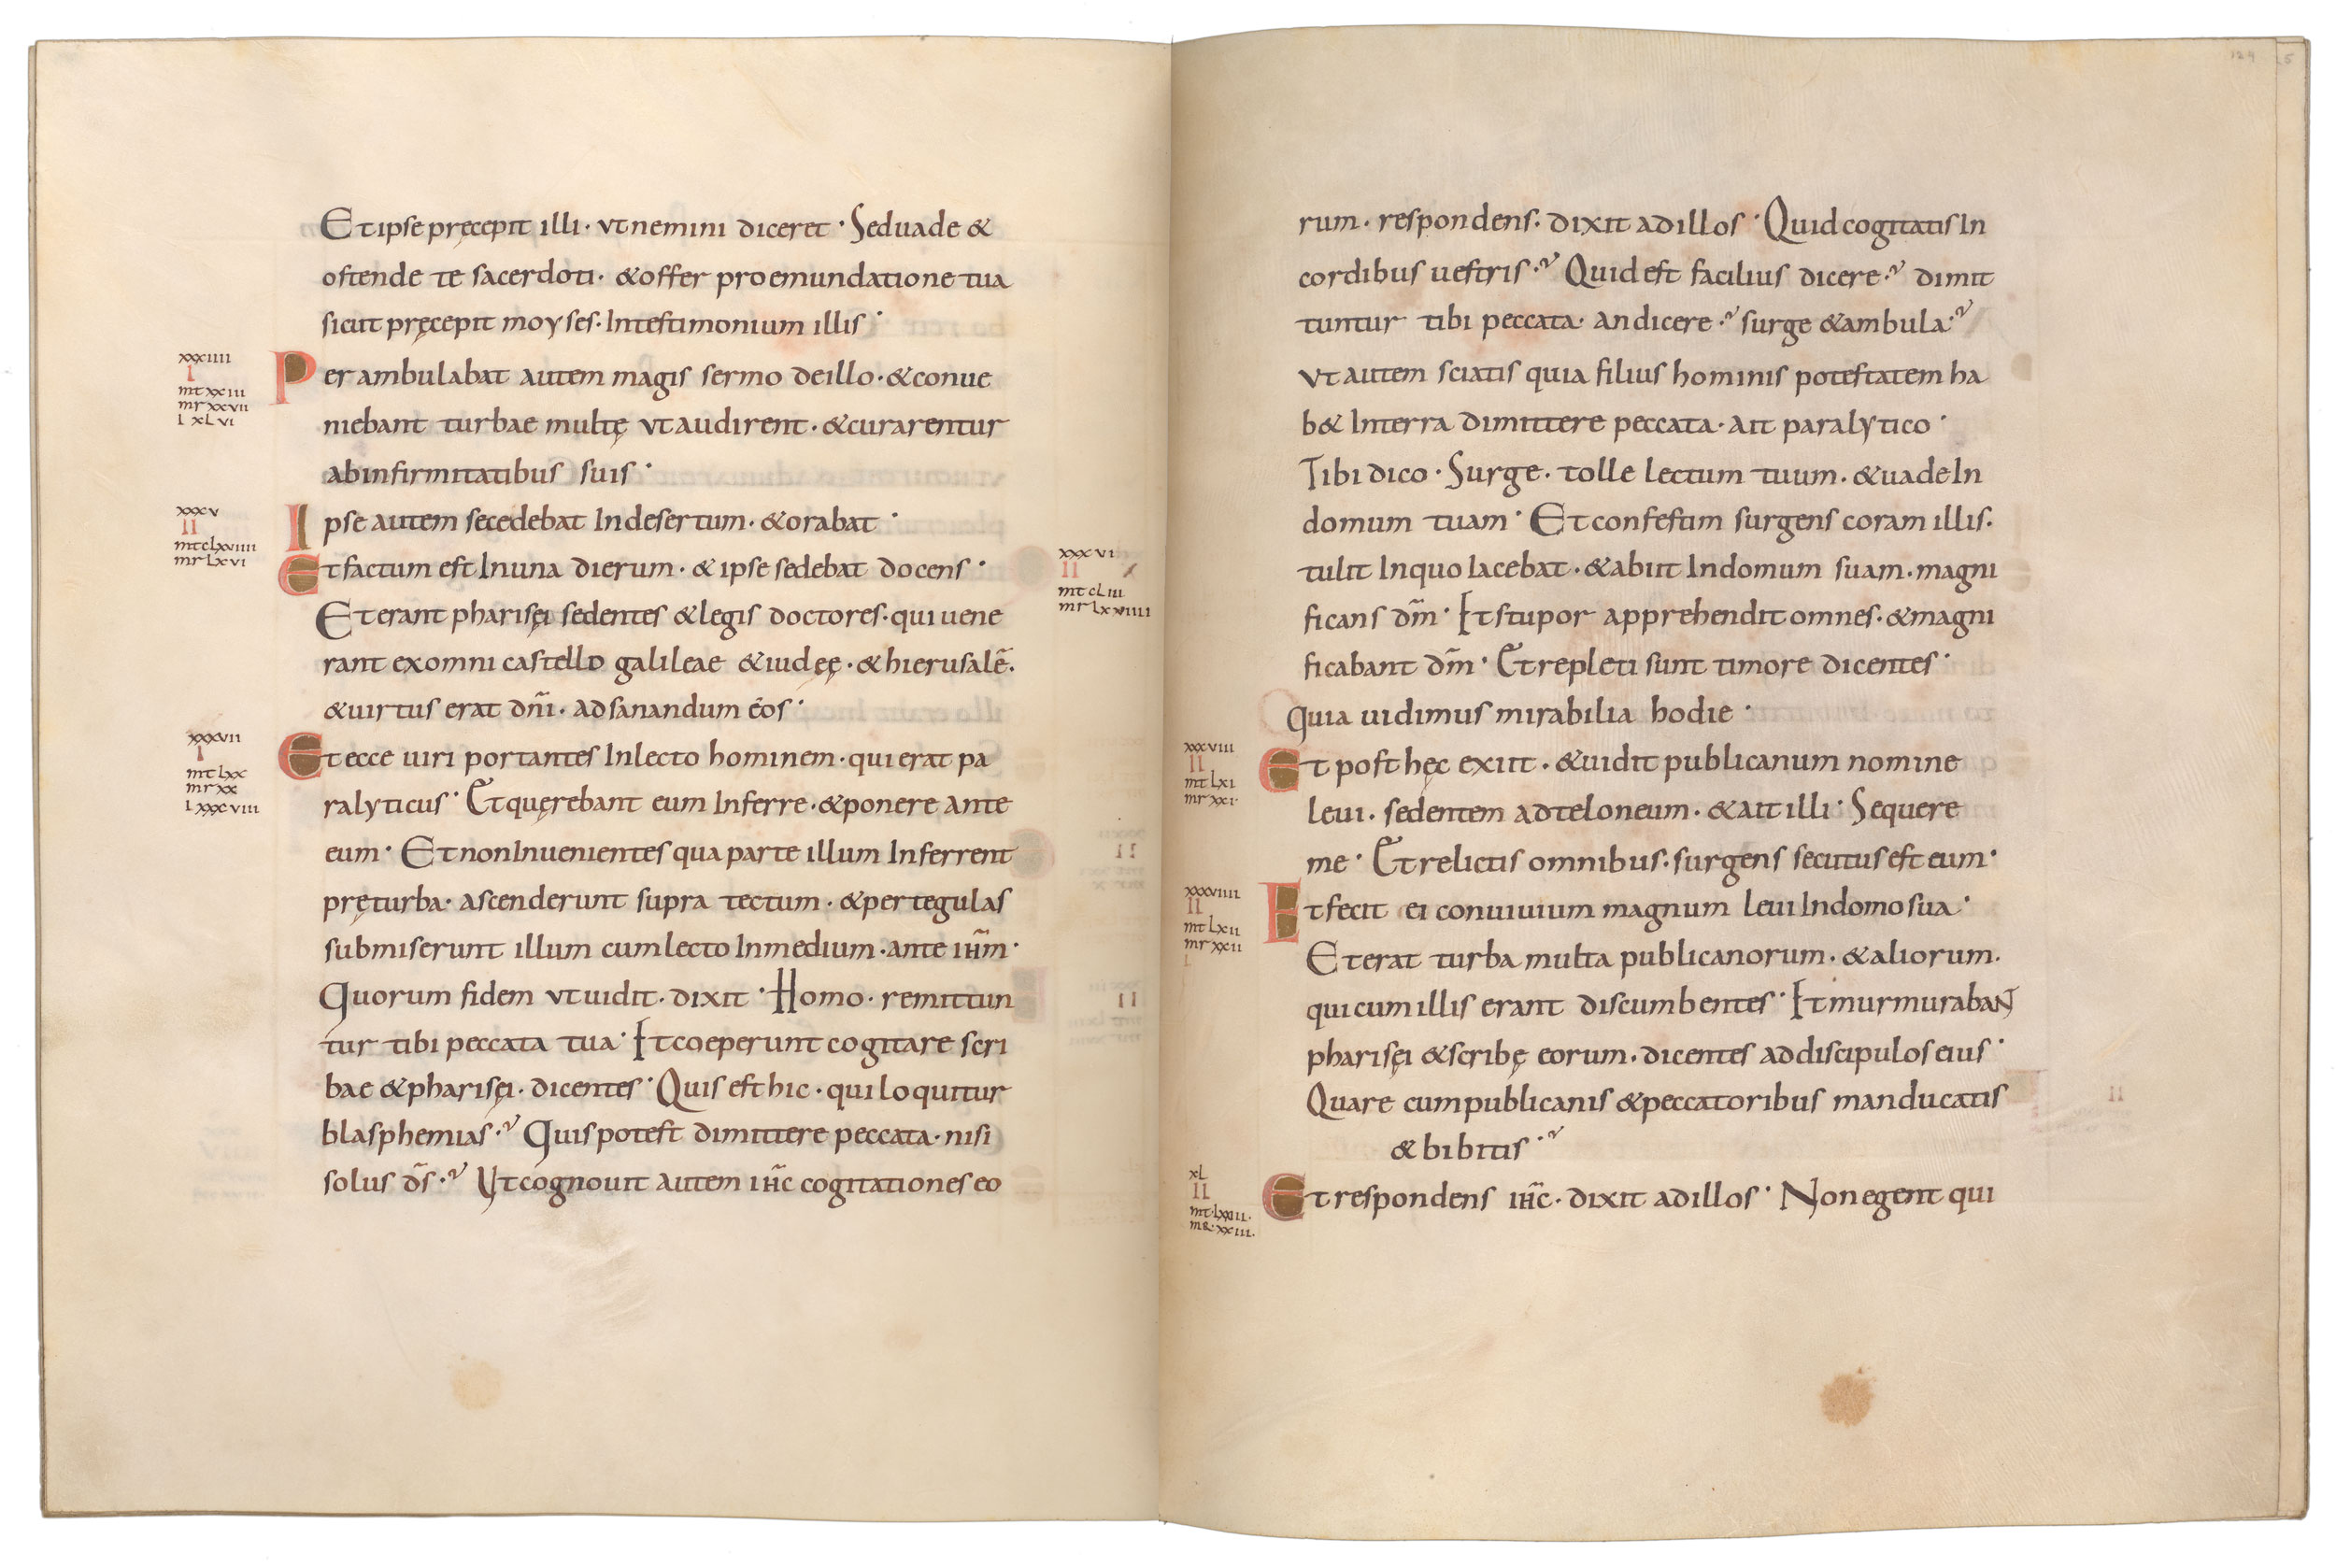 Et ipse pręcepit illi · ut nemini diceret · Sed uade &
ostende te sacerdoti · & offer pro emundatione tua
sicut pręcepit moyses · In testimonium illis ·
xxxiiii
I
mt xxiii
mr xxvii
l xlvi
Perambulabat autem magis sermo de illo · & conue
niebant turbae multę ut audirent · & curarentur
ab infirmitatibus suis ·
xxxv
II
mt clxviiii
mr lxvi
Ipse autem secedebat In desertum · & orabat ·
Et factum est In una dierum · & ipse sedebat docens ·
xxxvi
II
mt cliii
mr lxxviiii
Et erant pharisęi sedentes & legis doctores · qui uene
rant ex omni castello galileae & iudęę · & hierusalē ·
& uirtus erat dn̄i · ad sanandum eos ·
xxxvii
I
mt lxx
mr xx
l xxxviii
Et ecce uiri portantes In lecto hominem · qui erat pa
ralyticus · Et quęrebant eum Inferre · & ponere ante
eum · Et non Inuenientes qua parte illum Inferrent
prę turba · ascenderunt supra tectum · & per tegulas
submiserunt illum cum lecto In medium · ante ih̄m ·
Quorum fidem ut uidit · dixit · Homo · remittun
tur tibi peccata tua · Et coeperunt cogitare scri
bae & pharisęi · dicentes · Quis est hic · qui loquitur
blasphemias ? Quis potest dimittere peccata · nisi
solus d̄s ? Ut cognouit autem ih̄c cogitationes eo
124
5
rum · respondens · dixit ad illos · Quid cogitatis In
cordibus uestris ? Quid est facilius dicere ? dimit
tuntur tibi peccata · an dicere ? surge & ambula ?
Ut autem sciatis quia filius hominis potestatem ha
b& In terra dimittere peccata · ait paralytico ·
Tibi dico · Surge · tolle lectum tuum · & uade In
domum tuam · Et confestim surgens coram illis ·
tulit In quo Iacebat · & abiit In domum suam · magni
ficans dm̄ · Et stupor apprehendit omnes · & magni
ficabant dm̄ · Et repleti sunt timore dicentes ·
Quia uidimus mirabilia hodie ·
xxxviii
II
mt lxi
mr xxi
Et post hęc exiit · & uidit publicanum nomine
leui · sedentem ad teloneum · & ait illi · Sequere
me · Et relictis omnibus · surgens secutus est eum ·
xxxviiii
II
mt lxii
mr xxii
Et fecit ei conuiuium magnum leui In domo sua ·
Et erat turba multa publicanorum · & aliorum ·
qui cum illis erant discumbentes · Et murmurabant
pharisęi & scribę eorum · dicentes ad discipulos eius ·
Quare cum publicanis & peccatoribus manducatis
& bibitis ?
xl
II
mt · lxxiii ·
mr · xxiii ·
Et respondens ih̄c · dixit ad illos · Non egent qui